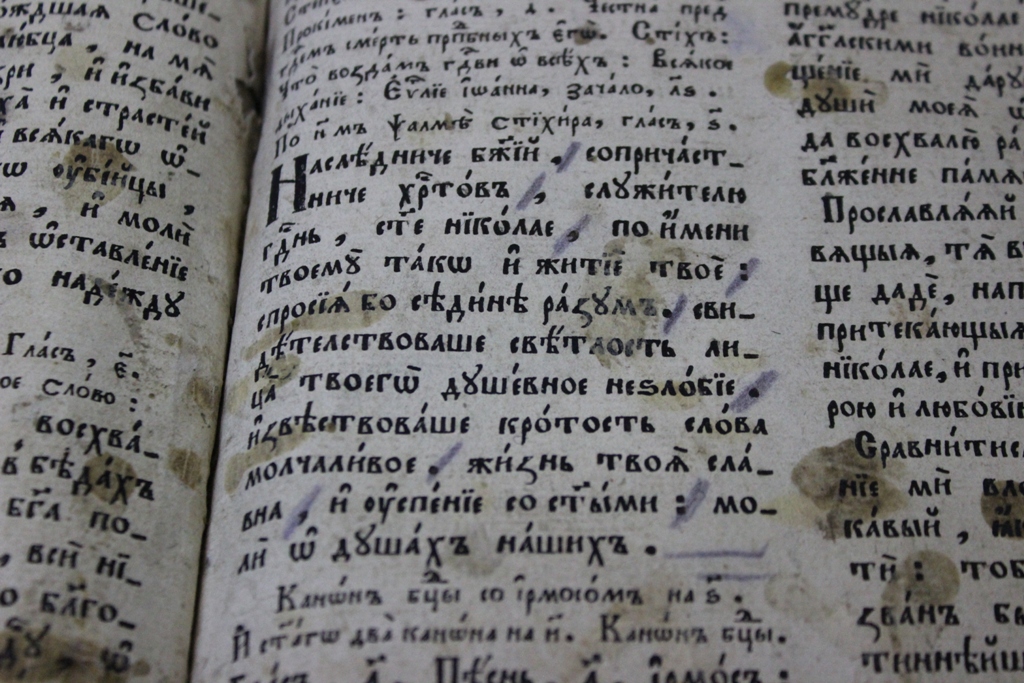 ждшаѧ Сло́во
на мѧ̀
и҆ и҆зба́ви
и҆ страсте́й
всѧ́кагѡ ѿ
ᲂу҆бі́йцы ,
и҆ молѝ
ѡ҆ставле́нїе
наде́жду
Гла́съ , є҃.
сло́во :
восхва́_
бѣда́хъ
бг҃а по_
всѝ ні_
бл҃го_
Проки́менъ : гла́съ , д҃. Честна̀ пред
сме́рть прпⷣбныхъ є҆гѡ̀. Сті́хъ :
Что̀ возда́мъ гдⷭ҇ви ѡ҆ всѣ́хъ : Всѧ́кое
дыха́нїе : Єѵⷢ҇лїе і҆ѡа́нна, зача́ло, л҃ѕ .
По н҃ мъ ѱалмѣ̀ стїхи́ра, гла́съ, ѕ҃.
Наслѣ́дниче бж҃їй , соприча́ст_
ниче хрⷭ҇то́въ , слꙋжи́телю
гдⷭ҇нь , ст҃е нїко́лае , по и҆́мени
твоемꙋ̀ та́кѡ и҆ житїѐ твоѐ :
спросїѧ́ бо сѣди́нѣ ра́зꙋмъ. сви_
дѣ́телствоваше свѣ́тлость ли_
ца̀ твоегѡ̀ дꙋше́вное неѕло́бїе .
и҆звѣ́ствоваше кро́тость сло́ва
молчали́вое . жи́знь твоѧ̀ сла́_
вна , и҆ ᲂу҆спе́нїе со ст҃ы́ми : мо_
лѝ ѡ҆ дꙋша́хъ на́шихъ .
Канѡ́нъ бцⷣы со і҆рмосо́мъ на ѕ҃.
И҆ ст҃а́гѡ два̀ канѡ́на на и҃. Канѡ́нъ бцⷣы.
гла́съ д҃. Пѣ́снь , а҃. і҆рмо́съ :
премꙋ́дре нїко́лае
а҆́гг҃лскими во́инь
ще́нїе мѝ да́рꙋ
дꙋшѝ моеѧ̀ ѡ҆
да восхвалю̀ ра́
бл҃же́нне па́мѧ
Прославлѧ́ѧй
вѧщыѧ, тѧ̀ в
ще дадѐ, нап
притека́ющыѧ
нїко́лае, и҆ при
рою и҆ любо́вїю
Сравни́тисѧ
нїе мѝ вла
ка́вый ,
тѝ : тоб
зва́нъ бы
тиннѣйш